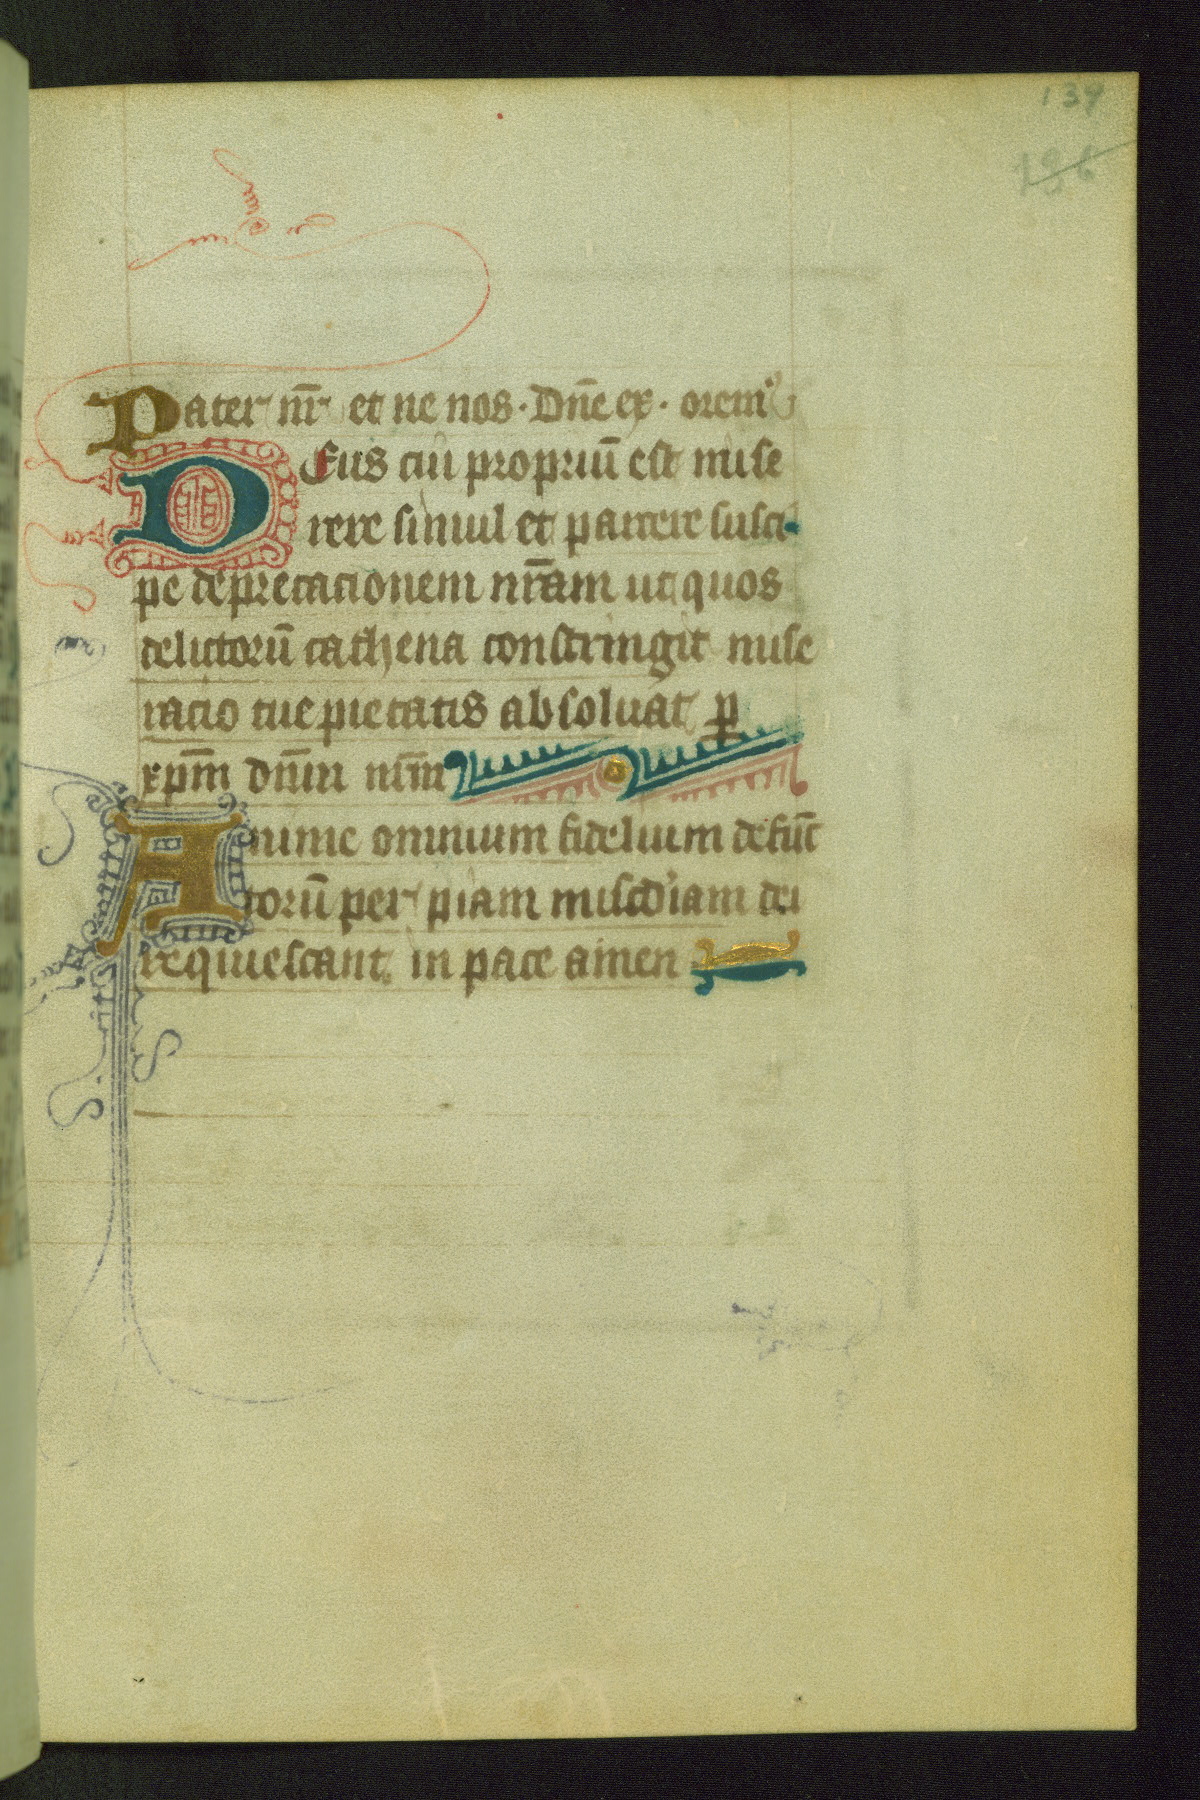 139
196
Pater nr̄ et ne nos · Dn̄e ex · orem᷒
Deus cui propriū est mise
rere simul et parcere susci-
pe deprecacionem nr̄am ut quos
delictorū cathena constringit mise
racio tue pietatis absoluat ꝑ
xp̄m dn̄m nr̄m
Anime omnium fidelium defūc
torū per piam miscd'iam dei
requiescant in pace amen